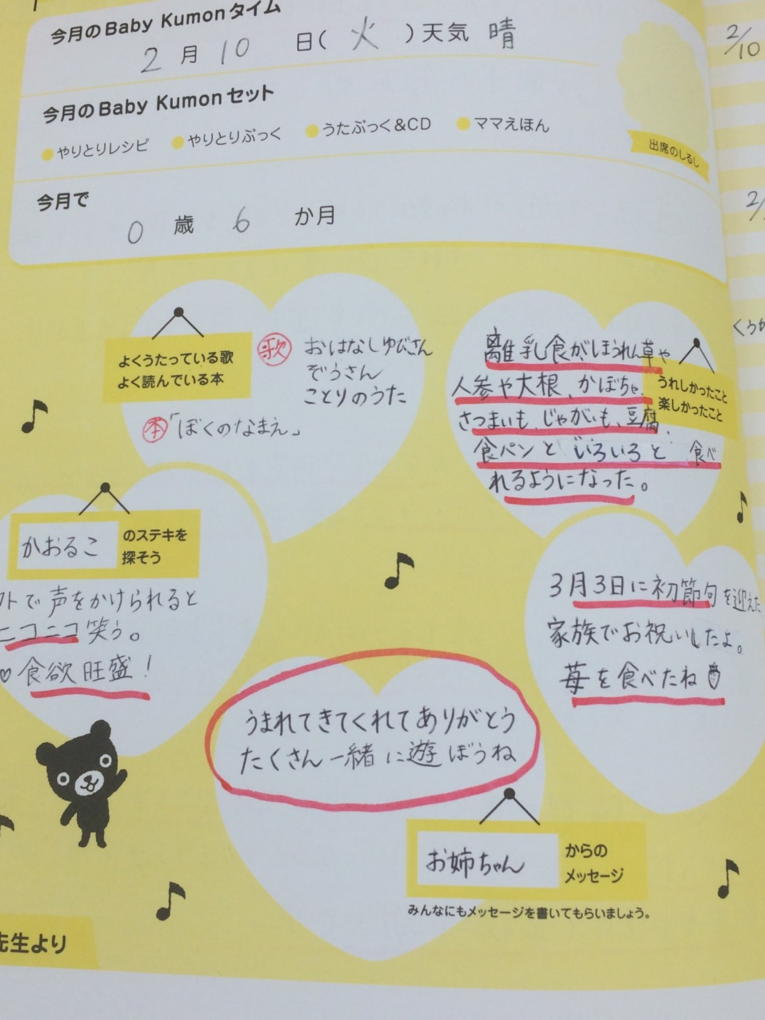 今月のBaby Kumonタイム
2月10日(火)天気 晴
今月のBaby Kumonセット
やりとりレシピ やりとりぶっく うたぶっく&CD ママえほん
出席のしるし
今月で
0歳 6か月
よくうたっている歌
よく読んでいる本
歌 おはなしゆびさん
ぞうさん
ことりのうた
本「ぼくのなまえ」
うれしかったこと
楽しかったこと
離乳食がほうれん草や
人参や大根、かぼちゃ
さつまいも、じゃがいも、豆腐、
食パンといろいろと食べ
れるようになった。
かおるこのステキを
探そう
トで声をかけられると
ニコニコ笑う。
♡食欲旺盛!
3月3日に初節句を迎えた
家族でお祝いしたよ。
苺を食べたね
うまれてきてくれてありがとう
たくさん一緒に遊ぼうね
お姉ちゃんからの
メッセージ
みんなにもメッセージを書いてもらいましょう。
先生より
2/10
2/